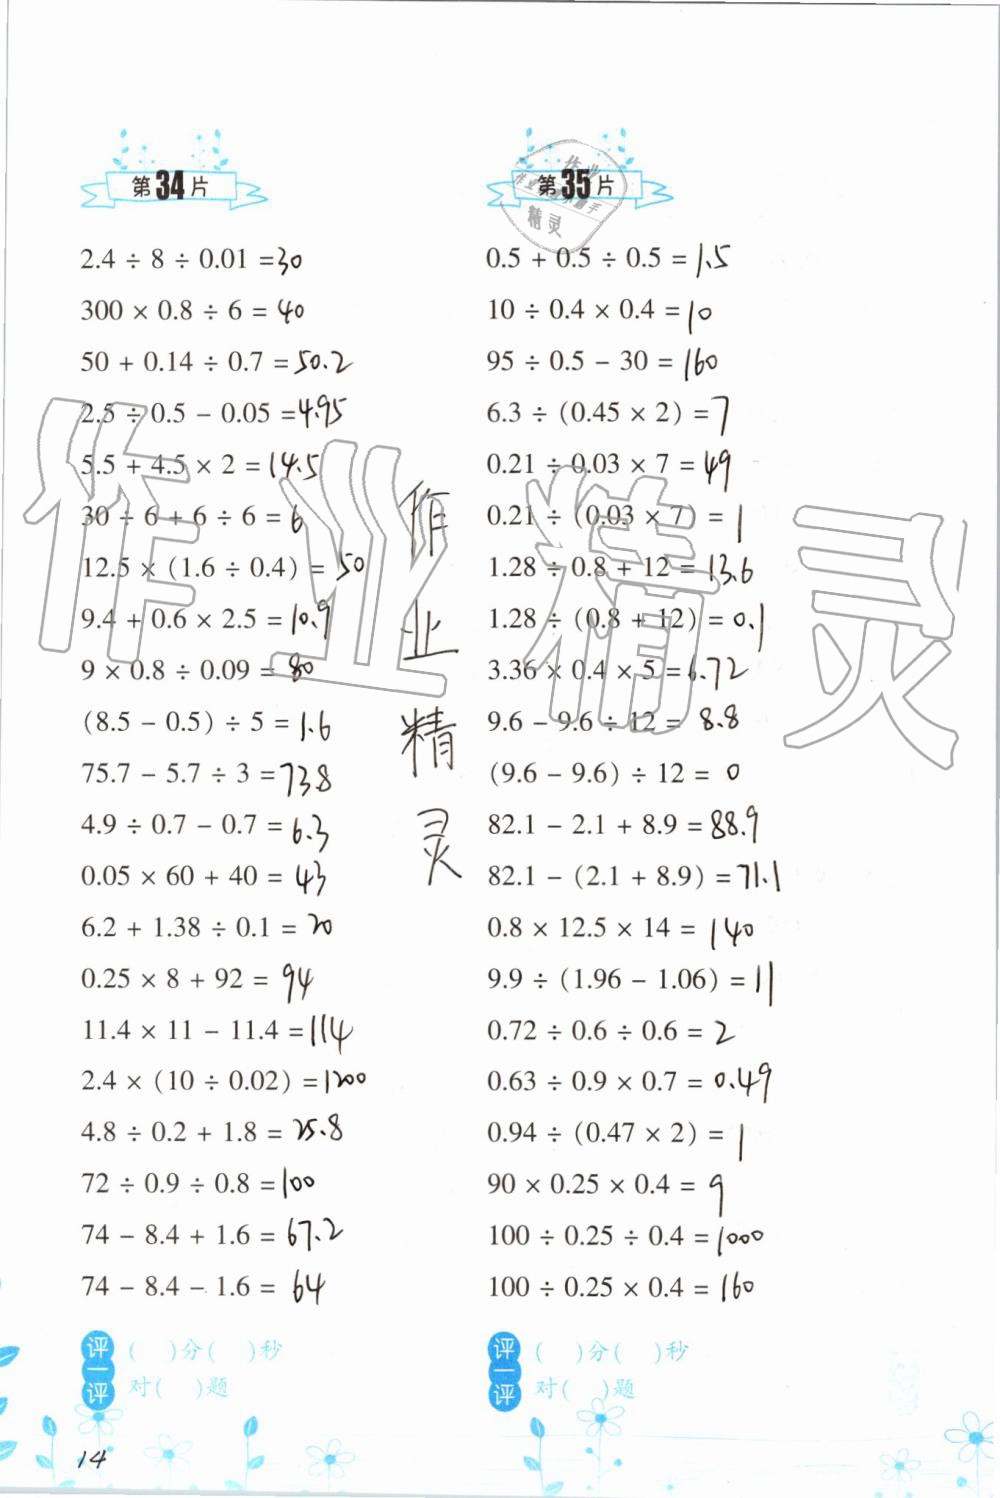 第34片
2.4 ÷ 8 ÷ 0.01 =30
300 × 0.8 ÷ 6 = 40
50 + 0.14 ÷ 0.7 =50.2
2.5 ÷ 0.5 - 0.05 =4.95
5.5 + 4.5 × 2 =14.5
30 ÷ 6 + 6 ÷ 6 = 6
12.5 × (1.6 ÷ 0.4) = 50
9.4 + 0.6 × 2.5 =10.9
9 × 0.8 ÷ 0.09 = 80
(8.5 - 0.5) ÷ 5 = 1.6
75.7 - 5.7 ÷ 3 =73.8
4.9 ÷ 0.7 - 0.7 = 6.3
0.05 × 60 + 40 = 43
6.2 + 1.38 ÷ 0.1 = 20
0.25 × 8 + 92 = 94
11.4 × 11 - 11.4 =114
2.4 × (10 ÷ 0.02) =1200
4.8 ÷ 0.2 + 1.8 = 25.8
72 ÷ 0.9 ÷ 0.8 =100
74 - 8.4 + 1.6 = 67.2
74 - 8.4 - 1.6 = 64
评一评
( )分( )秒
对( )题
第35片
0.5 + 0.5 ÷ 0.5 = 1.5
10 ÷ 0.4 × 0.4 = 10
95 ÷ 0.5 - 30 = 160
6.3 ÷ (0.45 × 2) = 7
0.21 ÷ 0.03 × 7 = 49
0.21 ÷ (0.03 × 7) = 1
1.28 ÷ 0.8 + 12 = 13.6
1.28 ÷ (0.8 + 12) = 0.1
3.36 × 0.4 × 5 = 6.72
9.6 - 9.6 ÷ 12 = 8.8
(9.6 - 9.6) ÷ 12 = 0
82.1 - 2.1 + 8.9 = 88.9
82.1 - (2.1 + 8.9) = 71.1
0.8 × 12.5 × 14 = 140
9.9 ÷ (1.96 - 1.06) = 11
0.72 ÷ 0.6 ÷ 0.6 = 2
0.63 ÷ 0.9 × 0.7 = 0.49
0.94 ÷ (0.47 × 2) = 1
90 × 0.25 × 0.4 = 9
100 ÷ 0.25 ÷ 0.4 = 1000
100 ÷ 0.25 × 0.4 = 160
评一评
( )分( )秒
对( )题
作业精灵
作业精灵
精灵
14